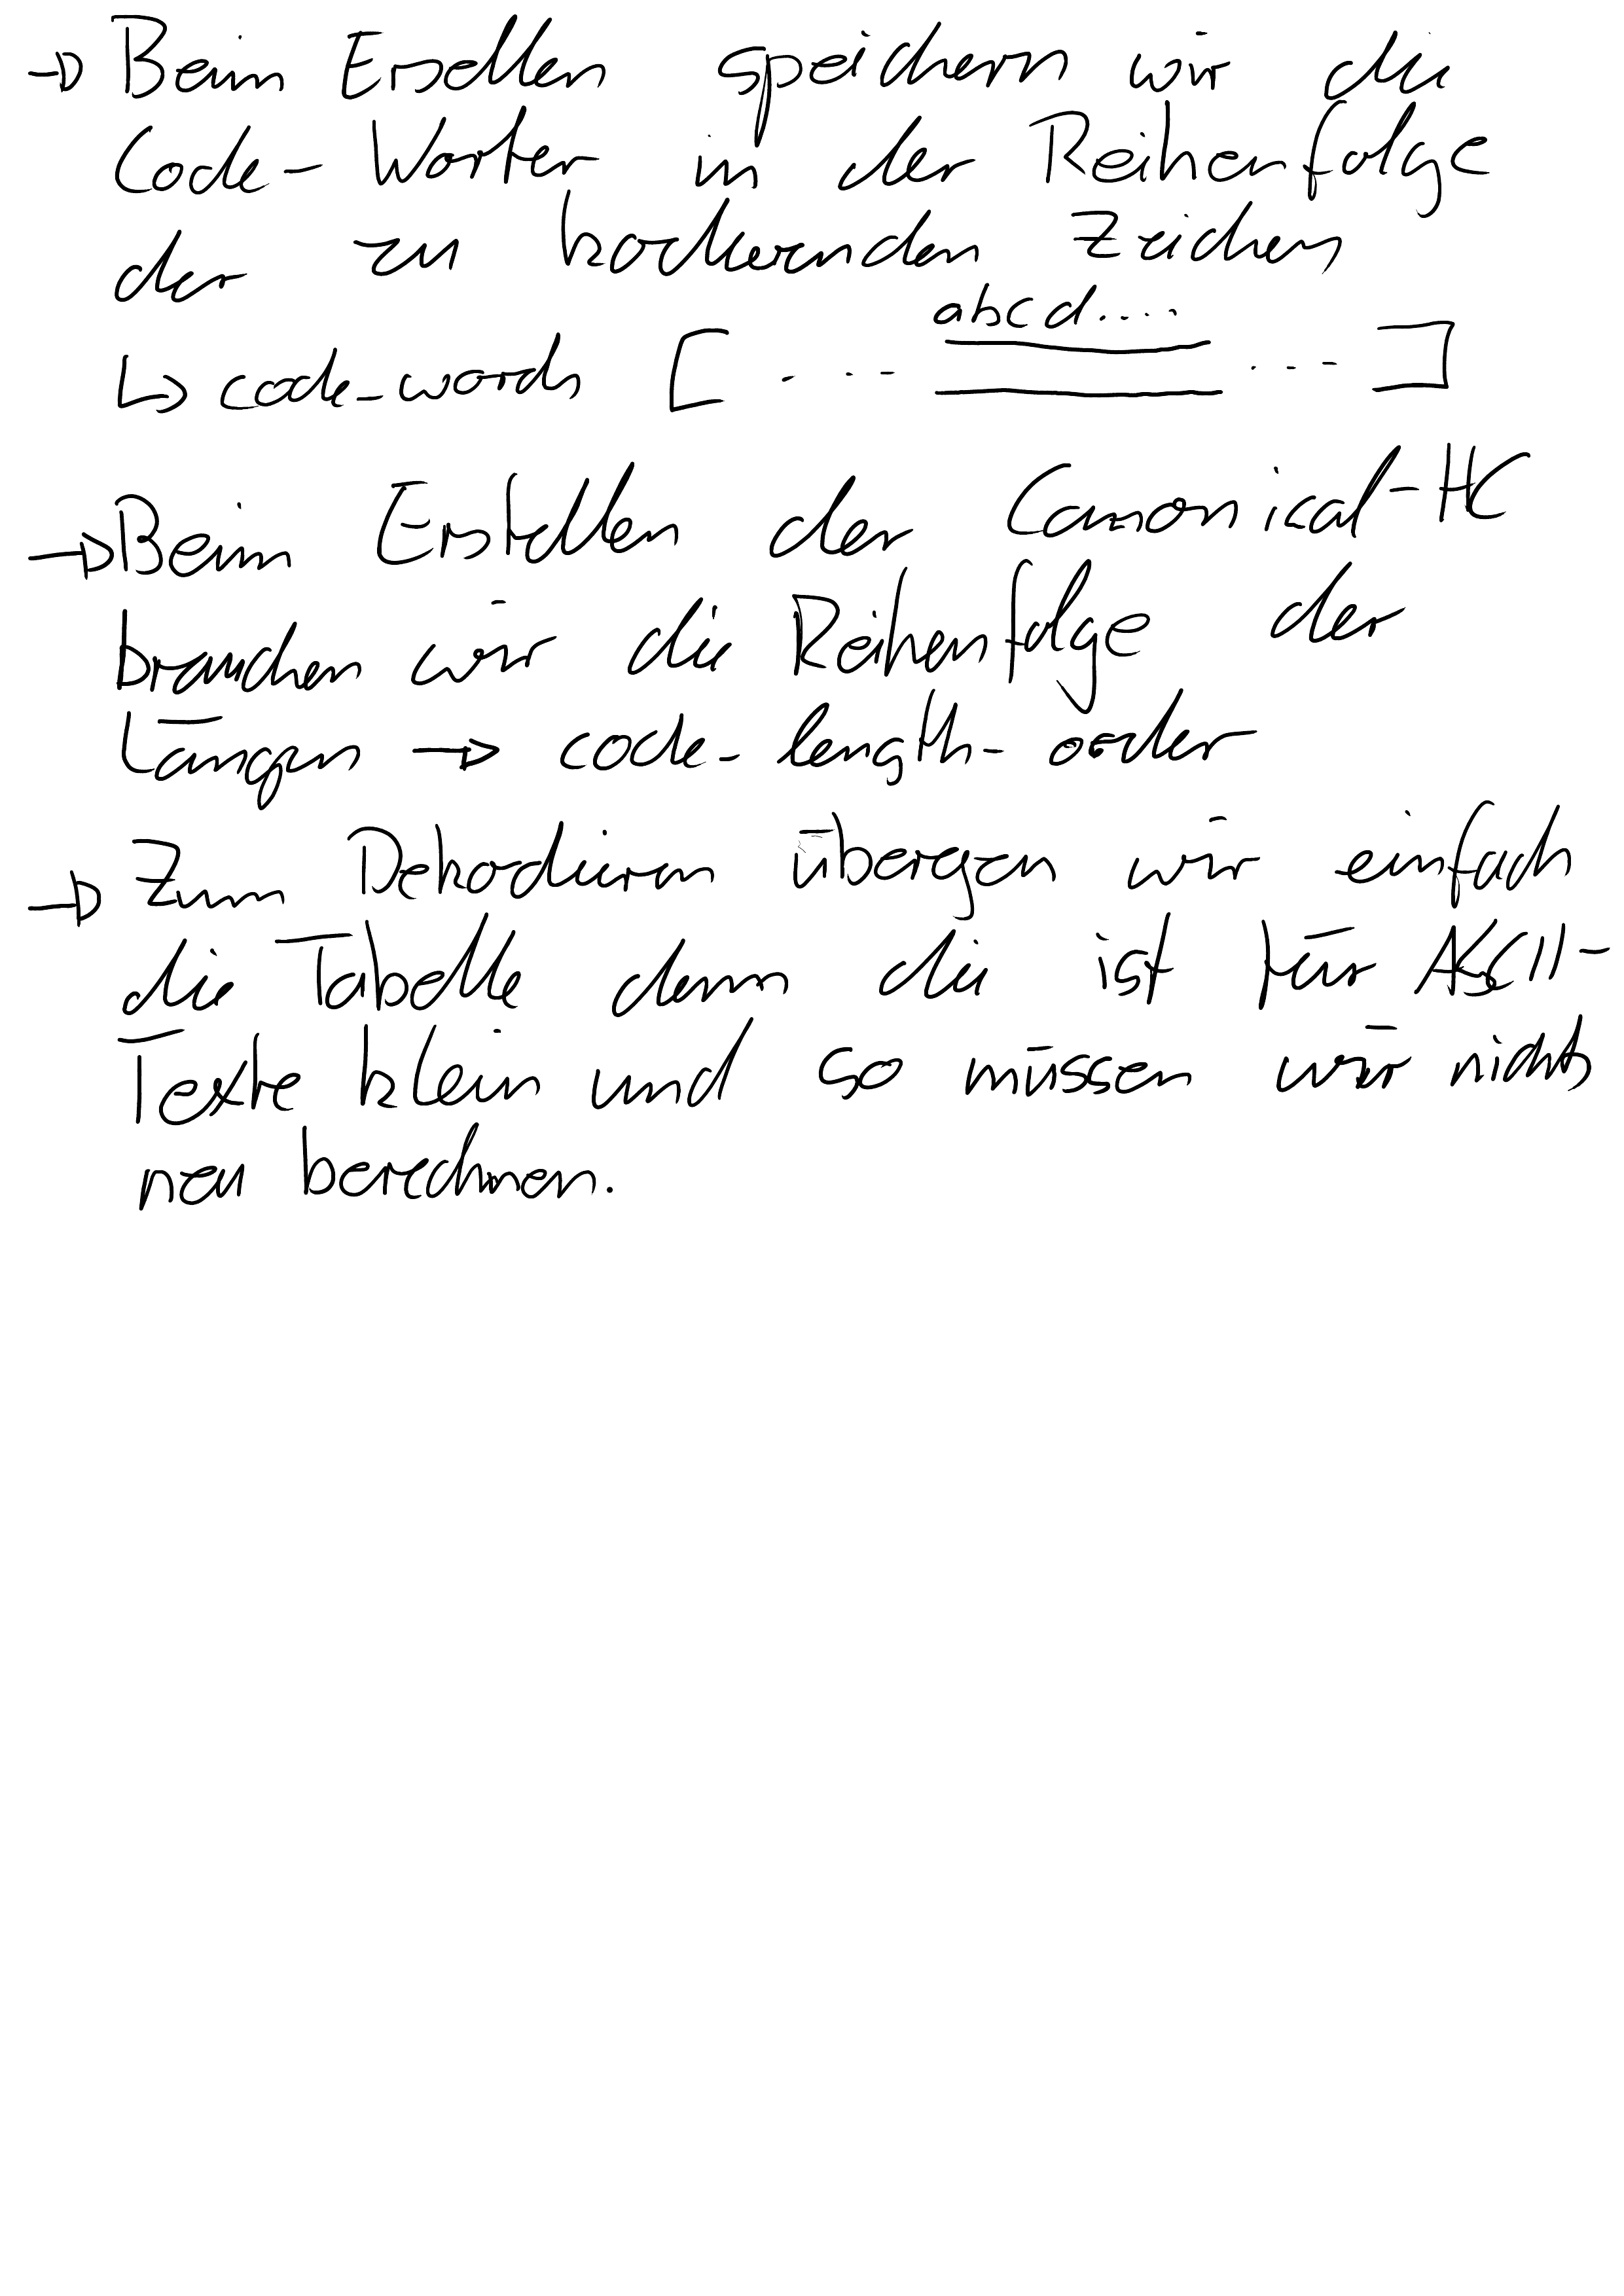 → Beim Ersellen speichern wir die
Code-Wörter in der Reihenfolge
der zu kodierenden Zeichen
abcd....
↳ code_words [ ... ... ]
→ Beim Erstellen der Canonical-HC
brauchen wir die Reihenfolge der
Längen → code_length_order
→ Zum Dekodieren übergen wir einfach
die Tabelle denn die ist für ASCII-
Texte klein und so müssen wir nichts
neu berechnen.